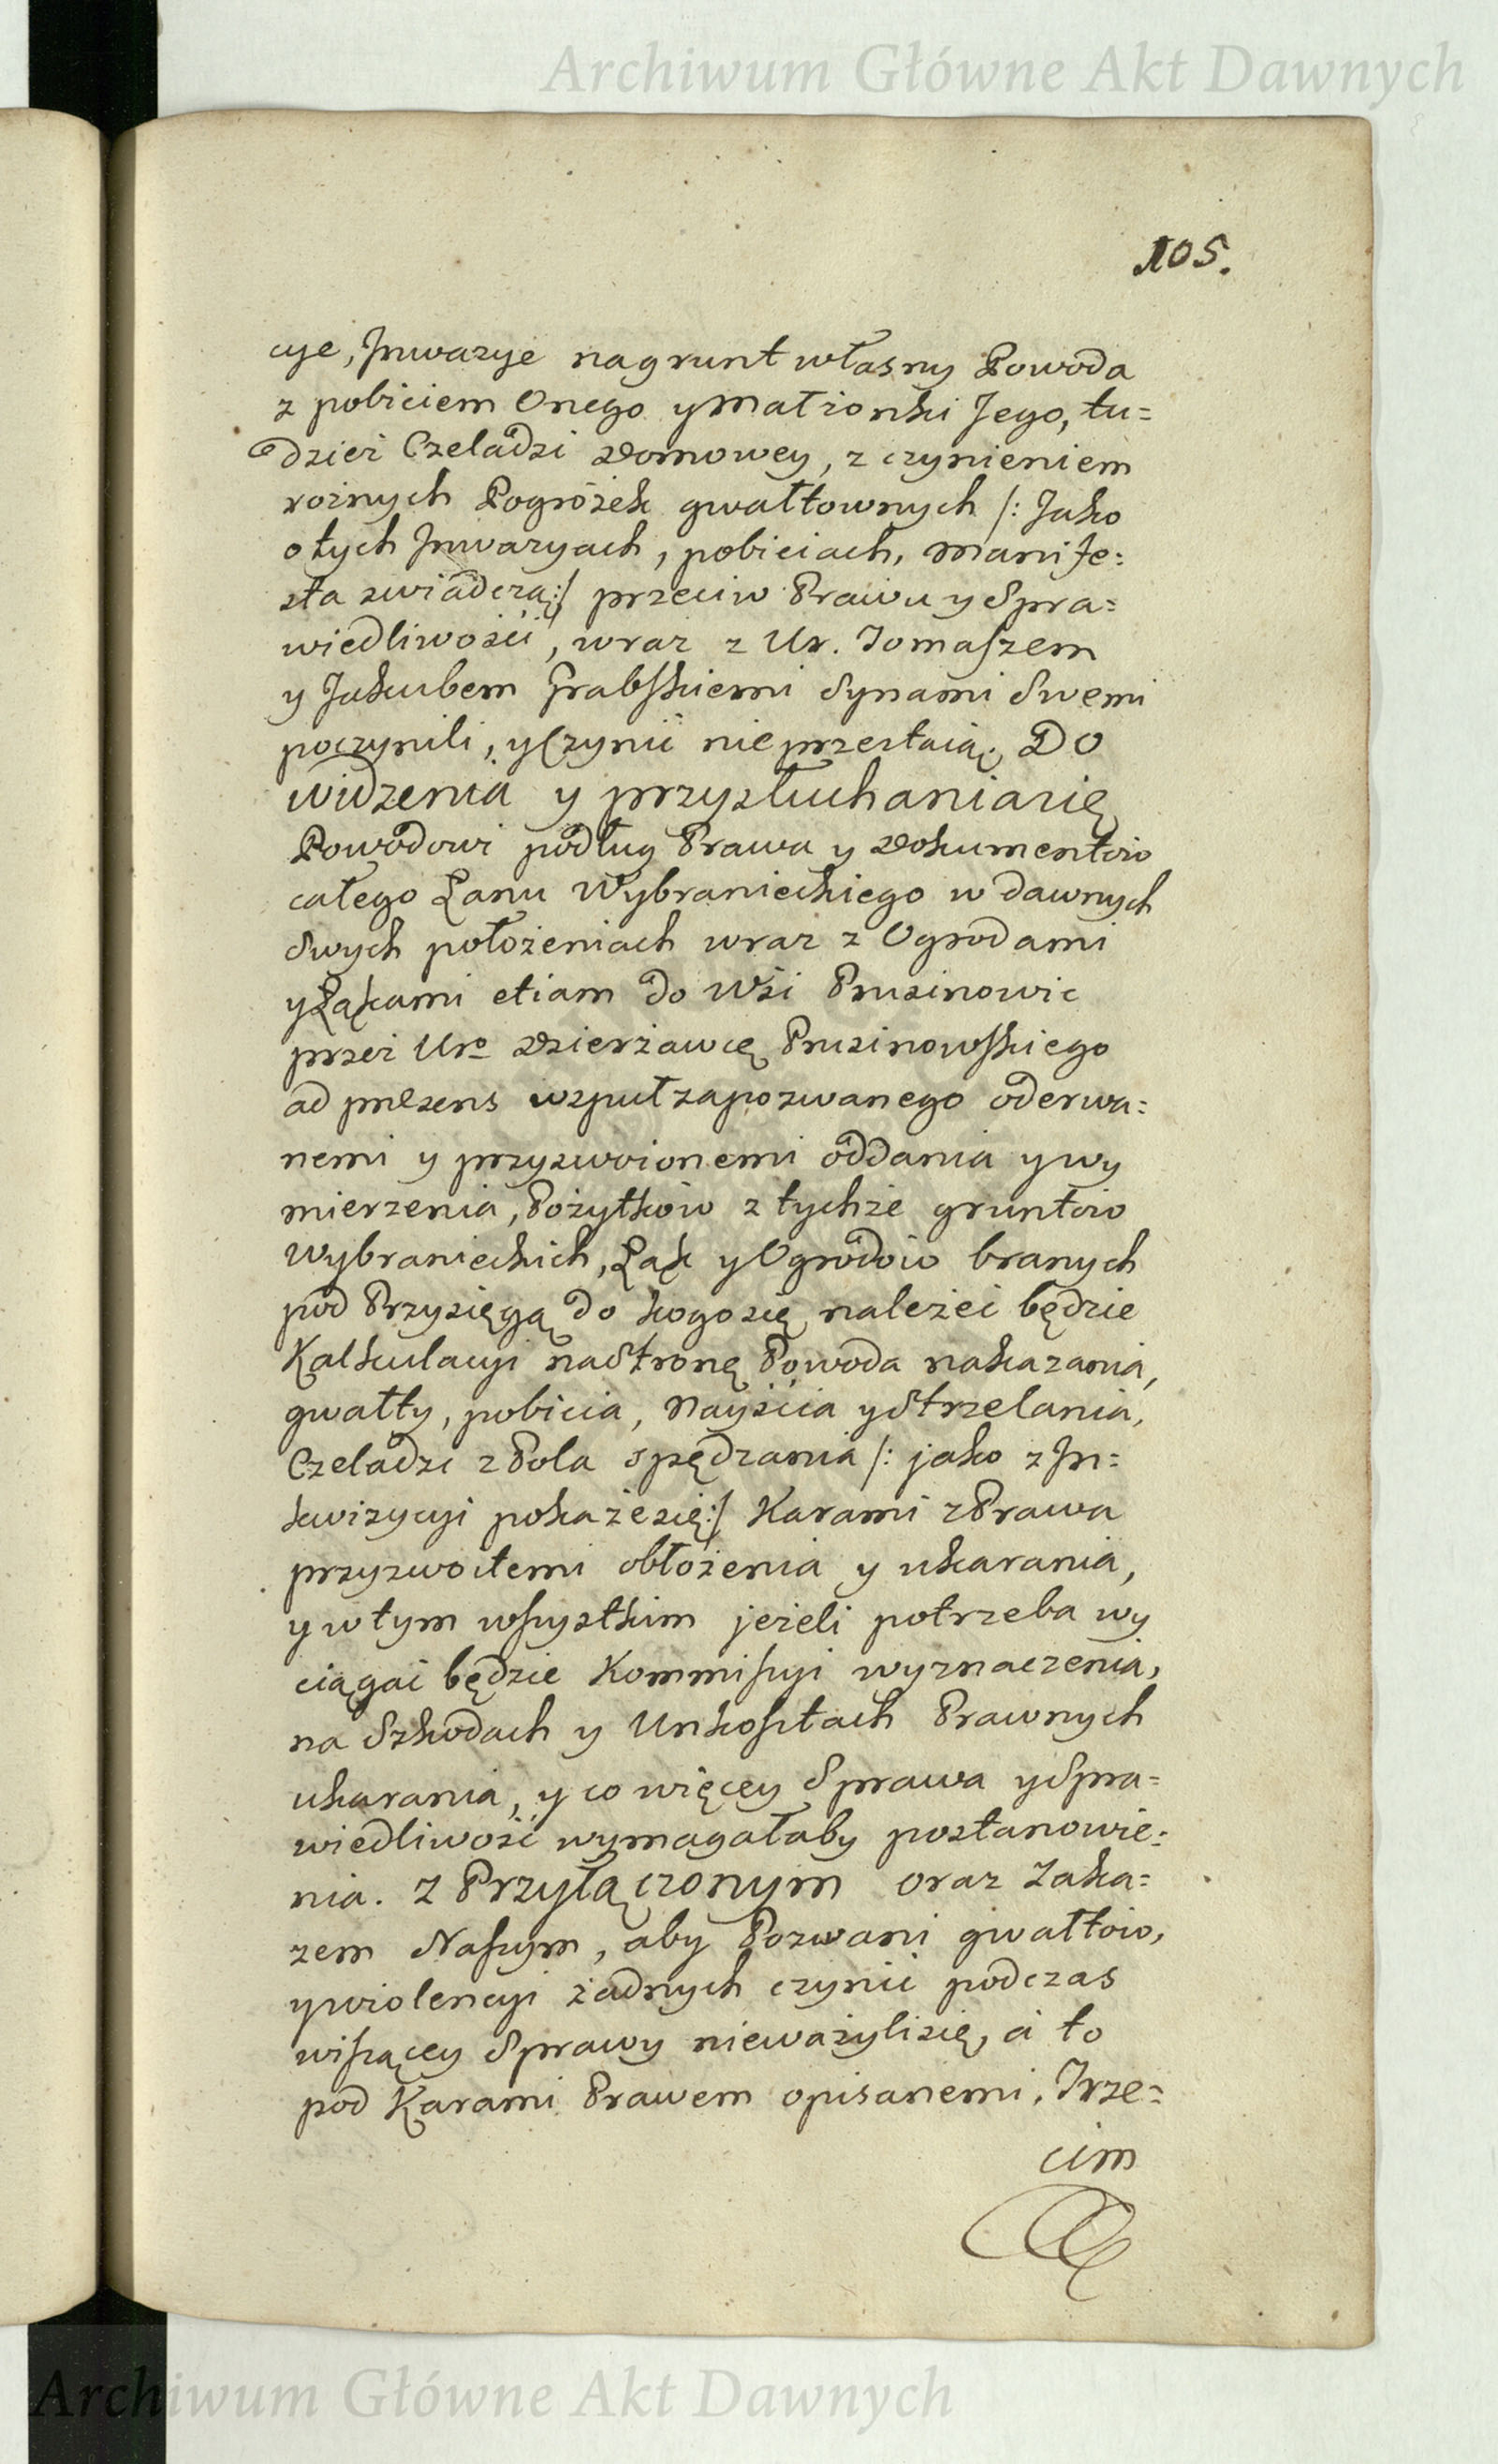 Archiwum Główne Akt Dawnych
105.
cye, Inwazye na grunt własny Powoda
z pobiciem Onego y Małżonki Jego, tu=
dzież Czeladzi Domowey, z czynieniem
rożnych Pogróżek gwałtownych /: Jako
o tych Inwazyach, pobiciach, Manife=
sta zwiadczą :/ przeciw Prawu y Spra=
wiedliwości, wraz z Ur. Tomaszem
y Jakubem Grabskiemi Synami Swemi
poczynili, y Czynić nieprzestaią. Do
widzenia y przysłuchania się
Powodowi podług Prawa y Dokumentow
całego Łanu Wybranieckiego w dawnych
Swych położeniach wraz z Ogrodami
y Łąkami etiam do Wsi Prusinowic
przez Uro Dzierżawcę Prusinowskiego
ad præsens wspułzapozwanego oderwa=
nemi y przyswoionemi oddania y wy
mierzenia, Pożytków z tychże gruntow
Wybranieckich, Łąk y Ogrodów branych
pod Przysięgą do kogo się należeć będzie
Kalkulacyi na Stronę Powoda nakazania,
gwałty, pobicia, Nayścia y Strzelania,
Czeladzi z Pola spędzania /: jako z In=
kwizycyi pokaże się :/ Karami z Prawa
przyzwoitemi obłożenia y ukarania,
y w tym wszystkim jeżeli potrzeba wy
ciągać będzie Kommissyi wyznaczenia,
na Szkodach y Unkosztach Prawnych
ukarania, y co więcey Sprawa y Spra=
wiedliwość wymagałaby postanowie=
nia. Z Przyłączonym oraz Zaka=
zem Naszym, aby Pozwani gwałtów,
y wiolencyi żadnych czynić podczas
wiszącey Sprawy nieważyli się, a to
pod Karami Prawem opisanemi. Trze=
cim
Archiwum Główne Akt Dawnych